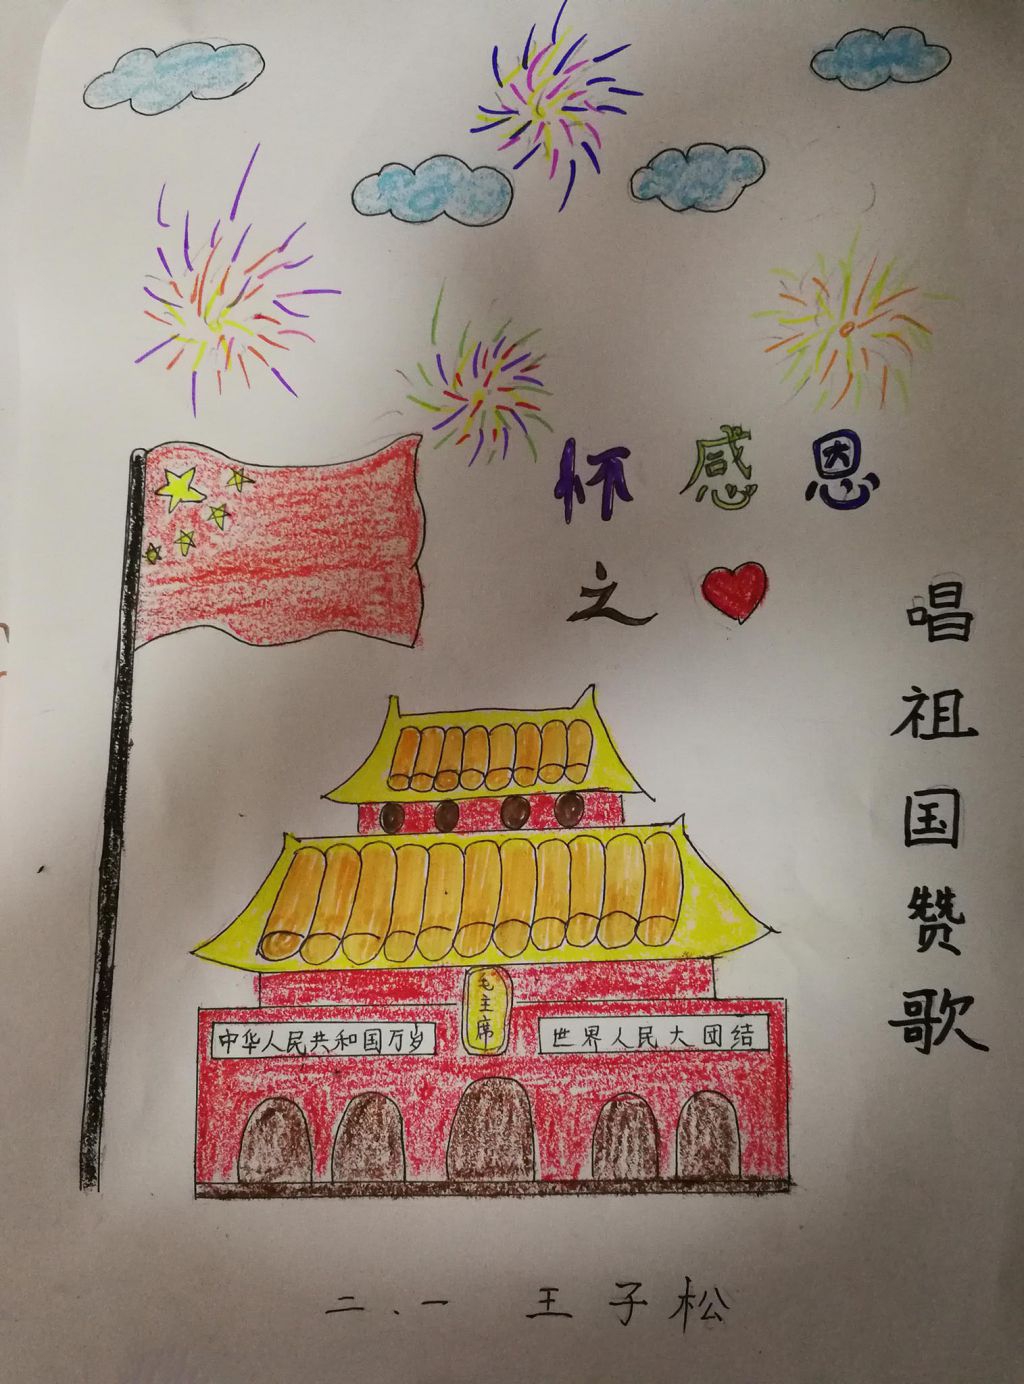 怀感恩
之
唱祖国赞歌
毛主席
中华人民共和国万岁
世界人民大团结
二、一 王子松